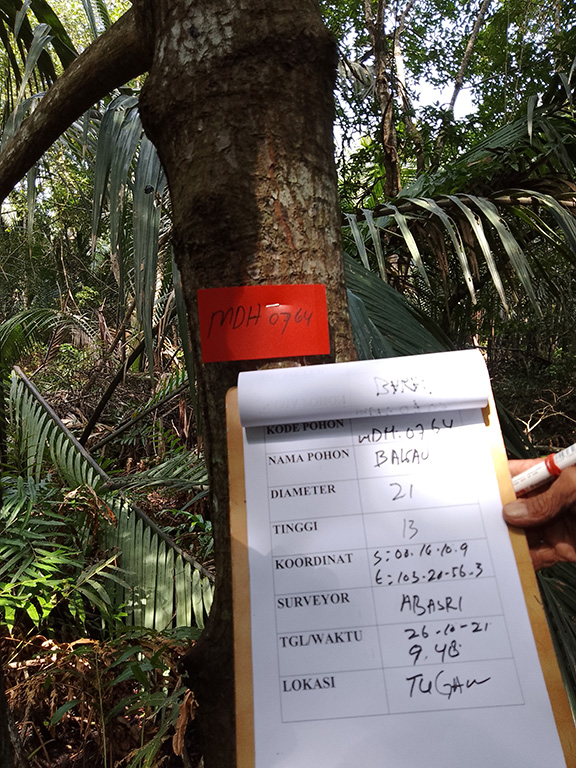 MDH 0764
KODE POHON MDH.0764
NAMA POHON BAKAU
DIAMETER 21
TINGGI 13
KOORDINAT S:00.16.10.9
E:103.20-56.3
SURVEYOR ABASRI
TGL/WAKTU 26-10-21
9.48
LOKASI